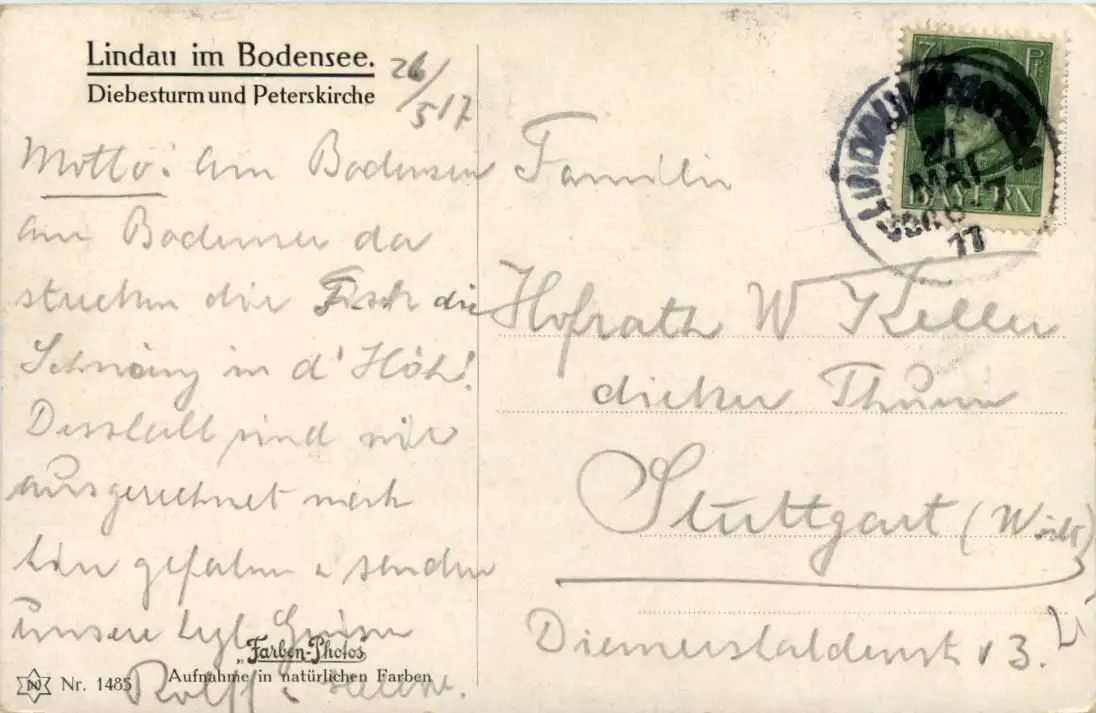 Lindau im Bodensee.
Diebesturm und Peterskirche
26/5 17
Motto: Am Bodensee
am Bodensee da
strecken die Fisch die
Schwänz in d' Höh!
Desshalb sind wir
ausgerechnet nach
Lindau gefahren u senden
unsere hzgl Grüsse
Rolff u Helene.
Familie
Hofrath W Keller
Stuttgart (Württ)
13.
7 Pf
BAYERN
LINDAU
21
MAI
17
„Farben-Photos“
Aufnahme in natürlichen Farben
Nr. 1485